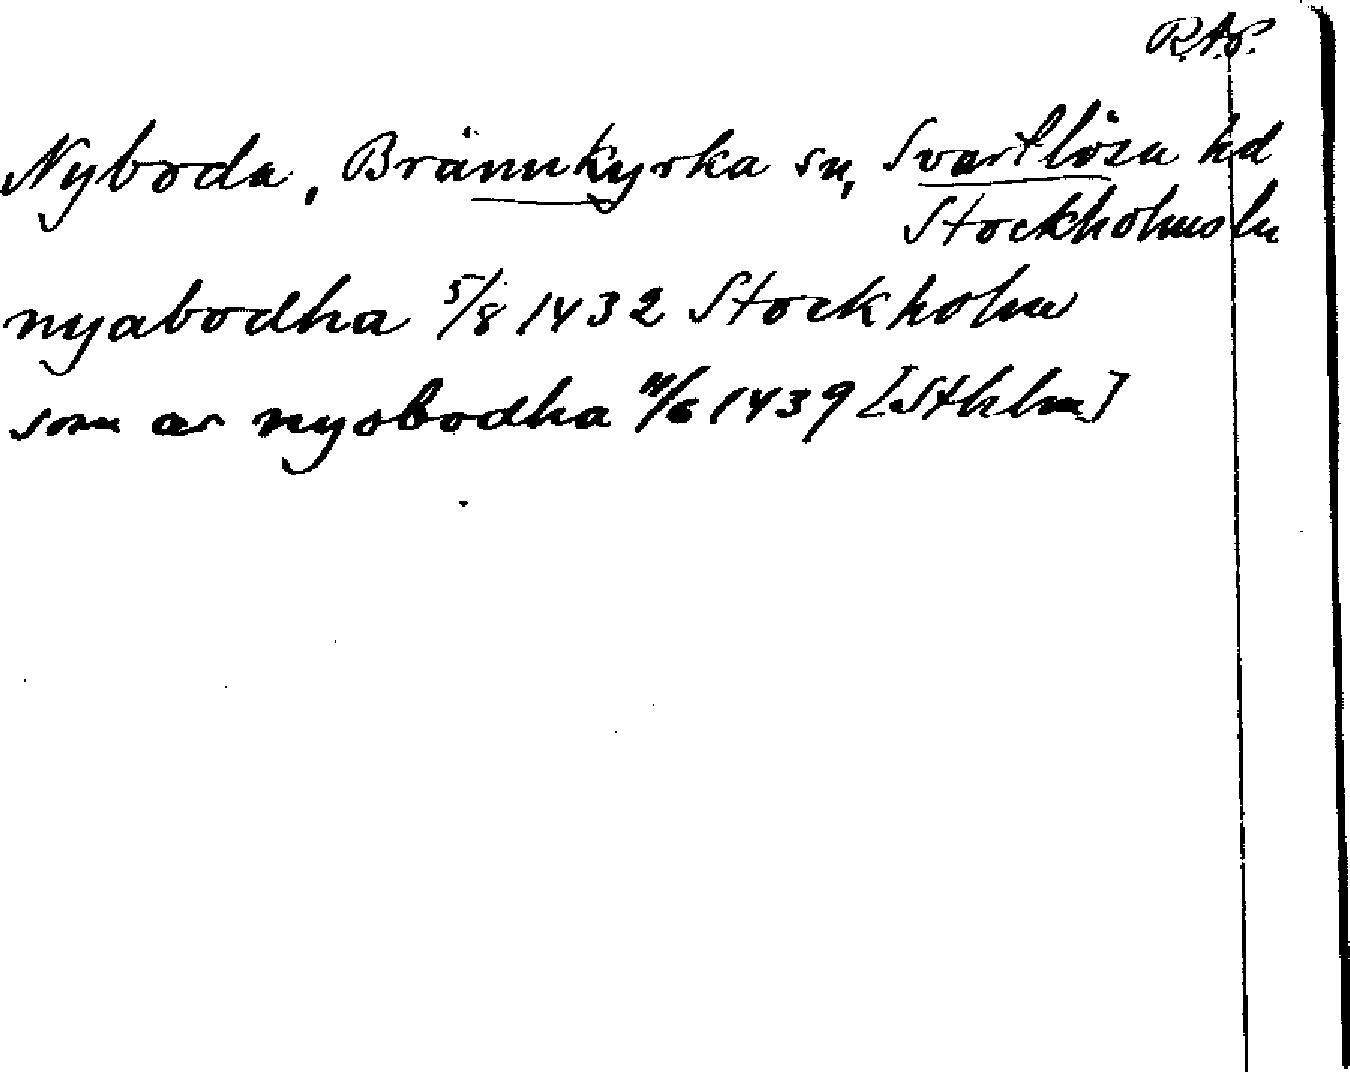 R.A.P.
Nyboda, Brännkyrka sn, Svartlösa hd
Stockholms ln
nyabodha 5/8 1432 Stockholm
som ær nyobodha /6 1439 [Sthlm]